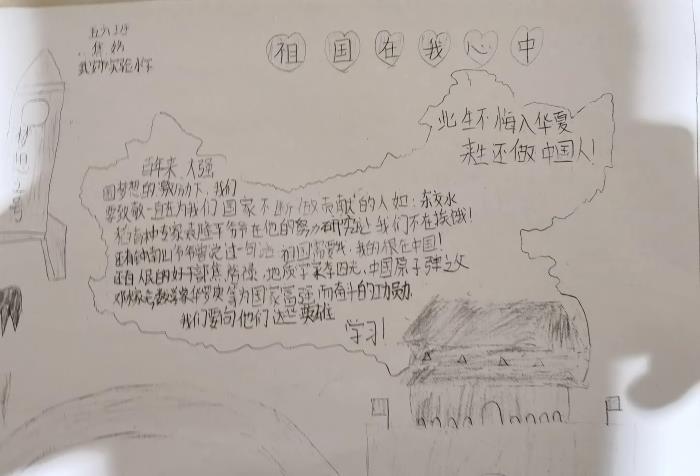 五六班
实验小学
祖国在我心中
此生不悔入华夏
来生还做中国人!
百年来 人强
圆梦想的激励下,我们
要致敬一直在为我们国家不断做贡献的人如:杂交水
稻育种专家袁隆平爷爷在他的努力研究让我们不在挨饿!
还有钟南山爷爷曾说过一句话 祖国需要我,我的根在中国!
还有人民的好干部焦裕禄,地质学家李四光,中国原子弹之父
邓稼先 数学家华罗庚等为国家富强而奋斗的功勋.
我们要向他们这些英雄
学习!
2号